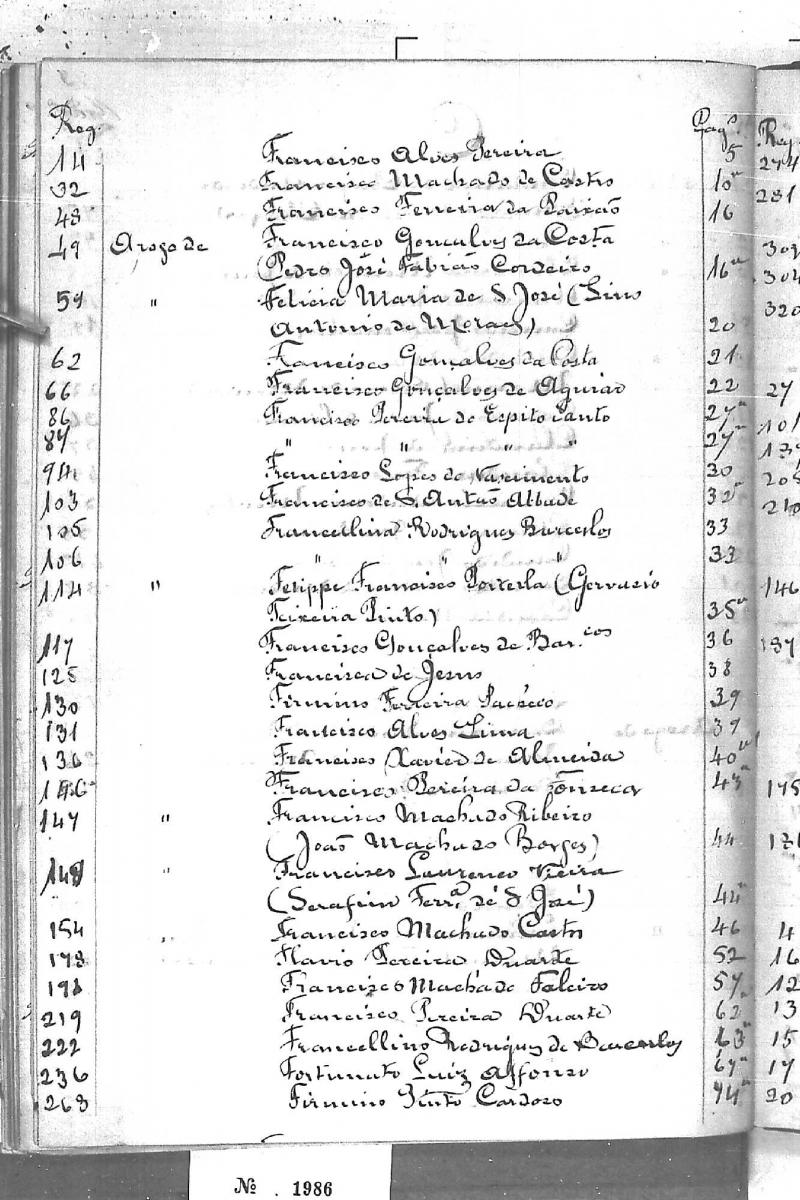 Reg. Pag.ˢ Reg
14 Francisco Alves Pereira 5 274
32 Francisco Machado de Castro 10ᵛ 281
48 Francisco Ferreira da Paixão 16
49 Arogo de Francisco Gonçalves da Costa
(Pedro José Fabião Cordeiro 16ᵛ 304
59 " Felicia Maria de S José (Lino 320
Antonio de Moraes) 20
62 Francisco Gonçalves da Costa 21
66 Francisco Gonçalves de Aguiar 22 27
86 Francisco Pereira do Espito Santo 27ᵛ 101
87 " " " " 27ᵛ
94 Francisco Lopes do Nascimento 30
103 Francisco de S. Antão Abbade 32ᵛ 210
105 Francellina Rodrigues Barcelos 33
106 " " " 33
114 " Felippe Francisco (Gervasio 146
Teixeira Pinto) 35ᵛ
117 Francisco Gonçalves de Bar.cos 36 187
125 Francisca de Jesus 38
130 Firmino Ferreira Pacheco 39
131 Francisco Alves Lima 39
136 Francisco Xavier de Almeida 40ᵛ
146 Francisco Pereira da Fonseca 43ᵛ 175
147 " Francisco Machado Ribeiro
(João Machado Borges) 44
148 " Francisco Lourenco Vieira
(Serafim Ferrª de S José) 44ᵛ
154 " Francisco Machado Castro 46 4
178 Flavio Pereira Duarte 52 16
Francisco Machado Faleiro 57 12
219 Francisco Pereira Duarte 62 13
222 Francellino Rodrigues de Barcellos 63ᵛ 15
236 Fortunato Luiz Affonso 67ᵛ 17
268 Firmino Pinto Cardozo 74ᵛ 20
Nº . 1986